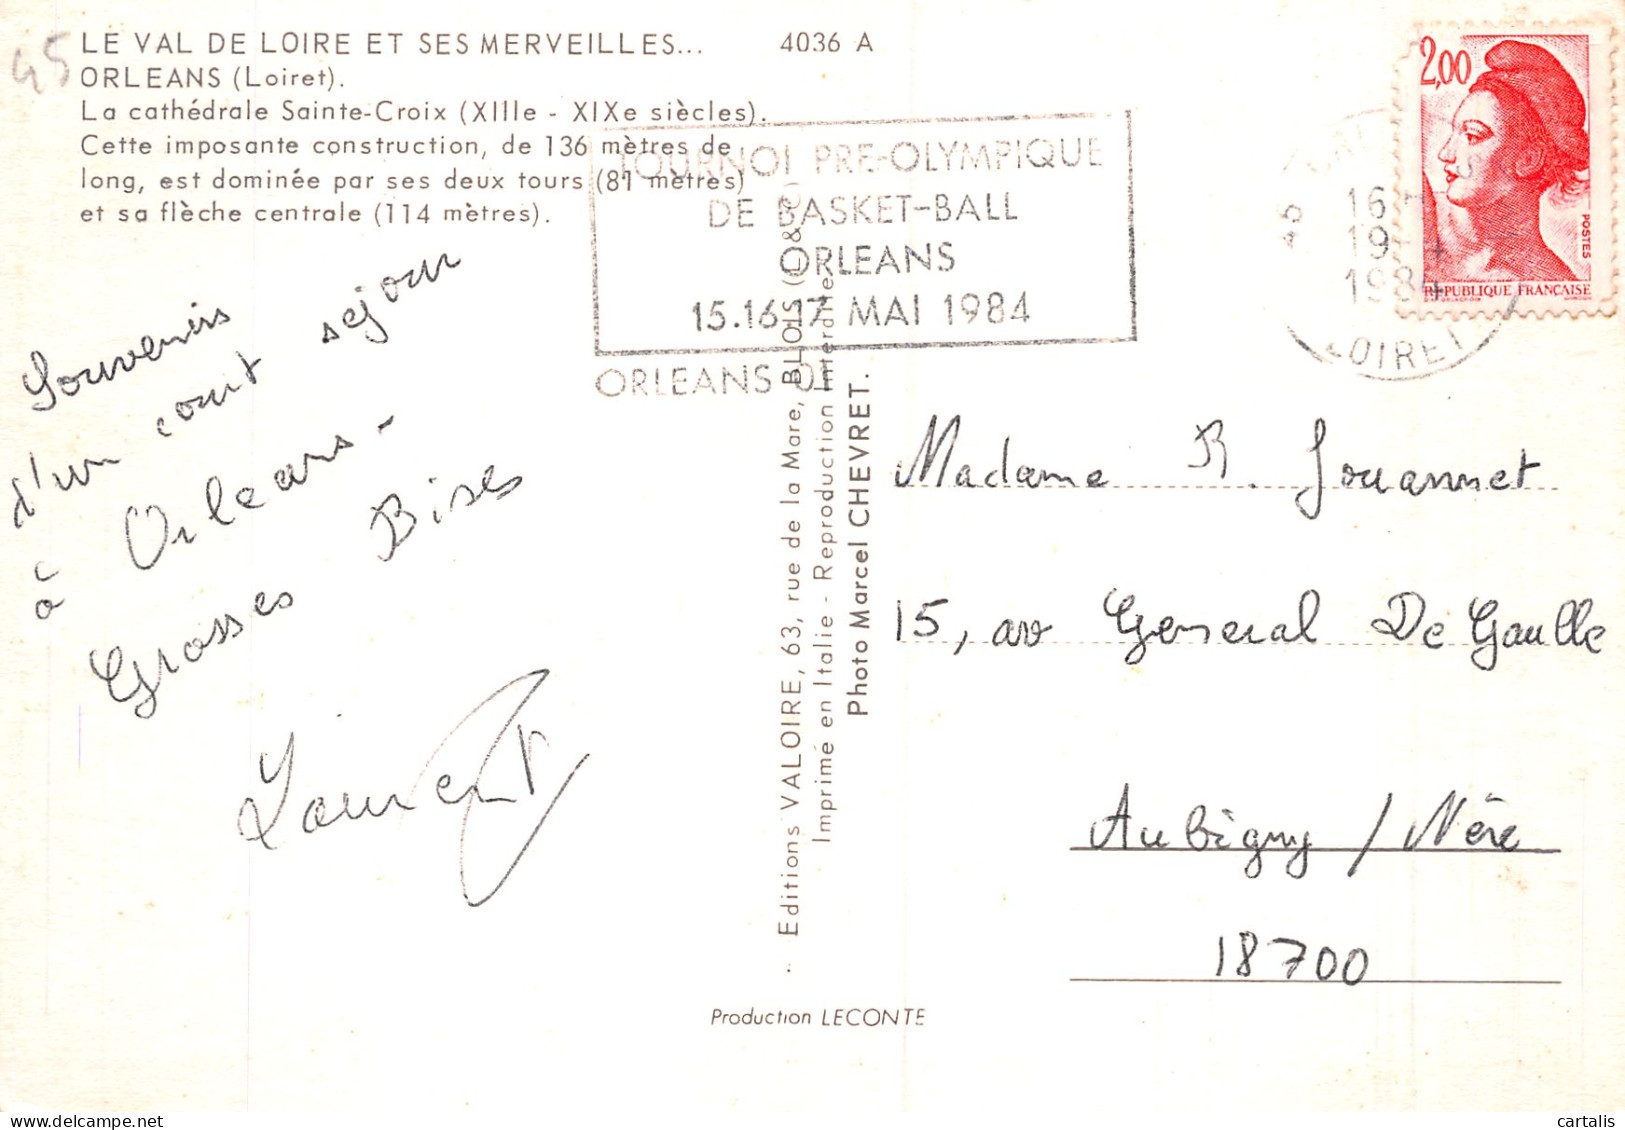 45
LE VAL DE LOIRE ET SES MERVEILLES... 4036 A
ORLEANS (Loiret).
La cathédrale Sainte-Croix (XIIIe - XIXe siècles).
Cette imposante construction, de 136 mètres de
long, est dominée par ses deux tours (81 mètres)
et sa flèche centrale (114 mètres).
TOURNOI PRE-OLYMPIQUE
DE BASKET-BALL
ORLEANS
15.16.17 MAI 1984
ORLEANS
2,00
POSTES
REPUBLIQUE FRANÇAISE
45
16
19 - 4
1984
LOIRET
Souvenirs
d'un court séjour
à Orléans -
Grosses Bises
Laurent
Editions VALOIRE, 63, rue de la Mare, BLOIS
Imprimé en Italie - Reproduction interdite
Photo Marcel CHEVRET.
Madame R. Jouannet
15, av General De Gaulle
Aubigny / Nère
18700
Production LECONTE
cartalis